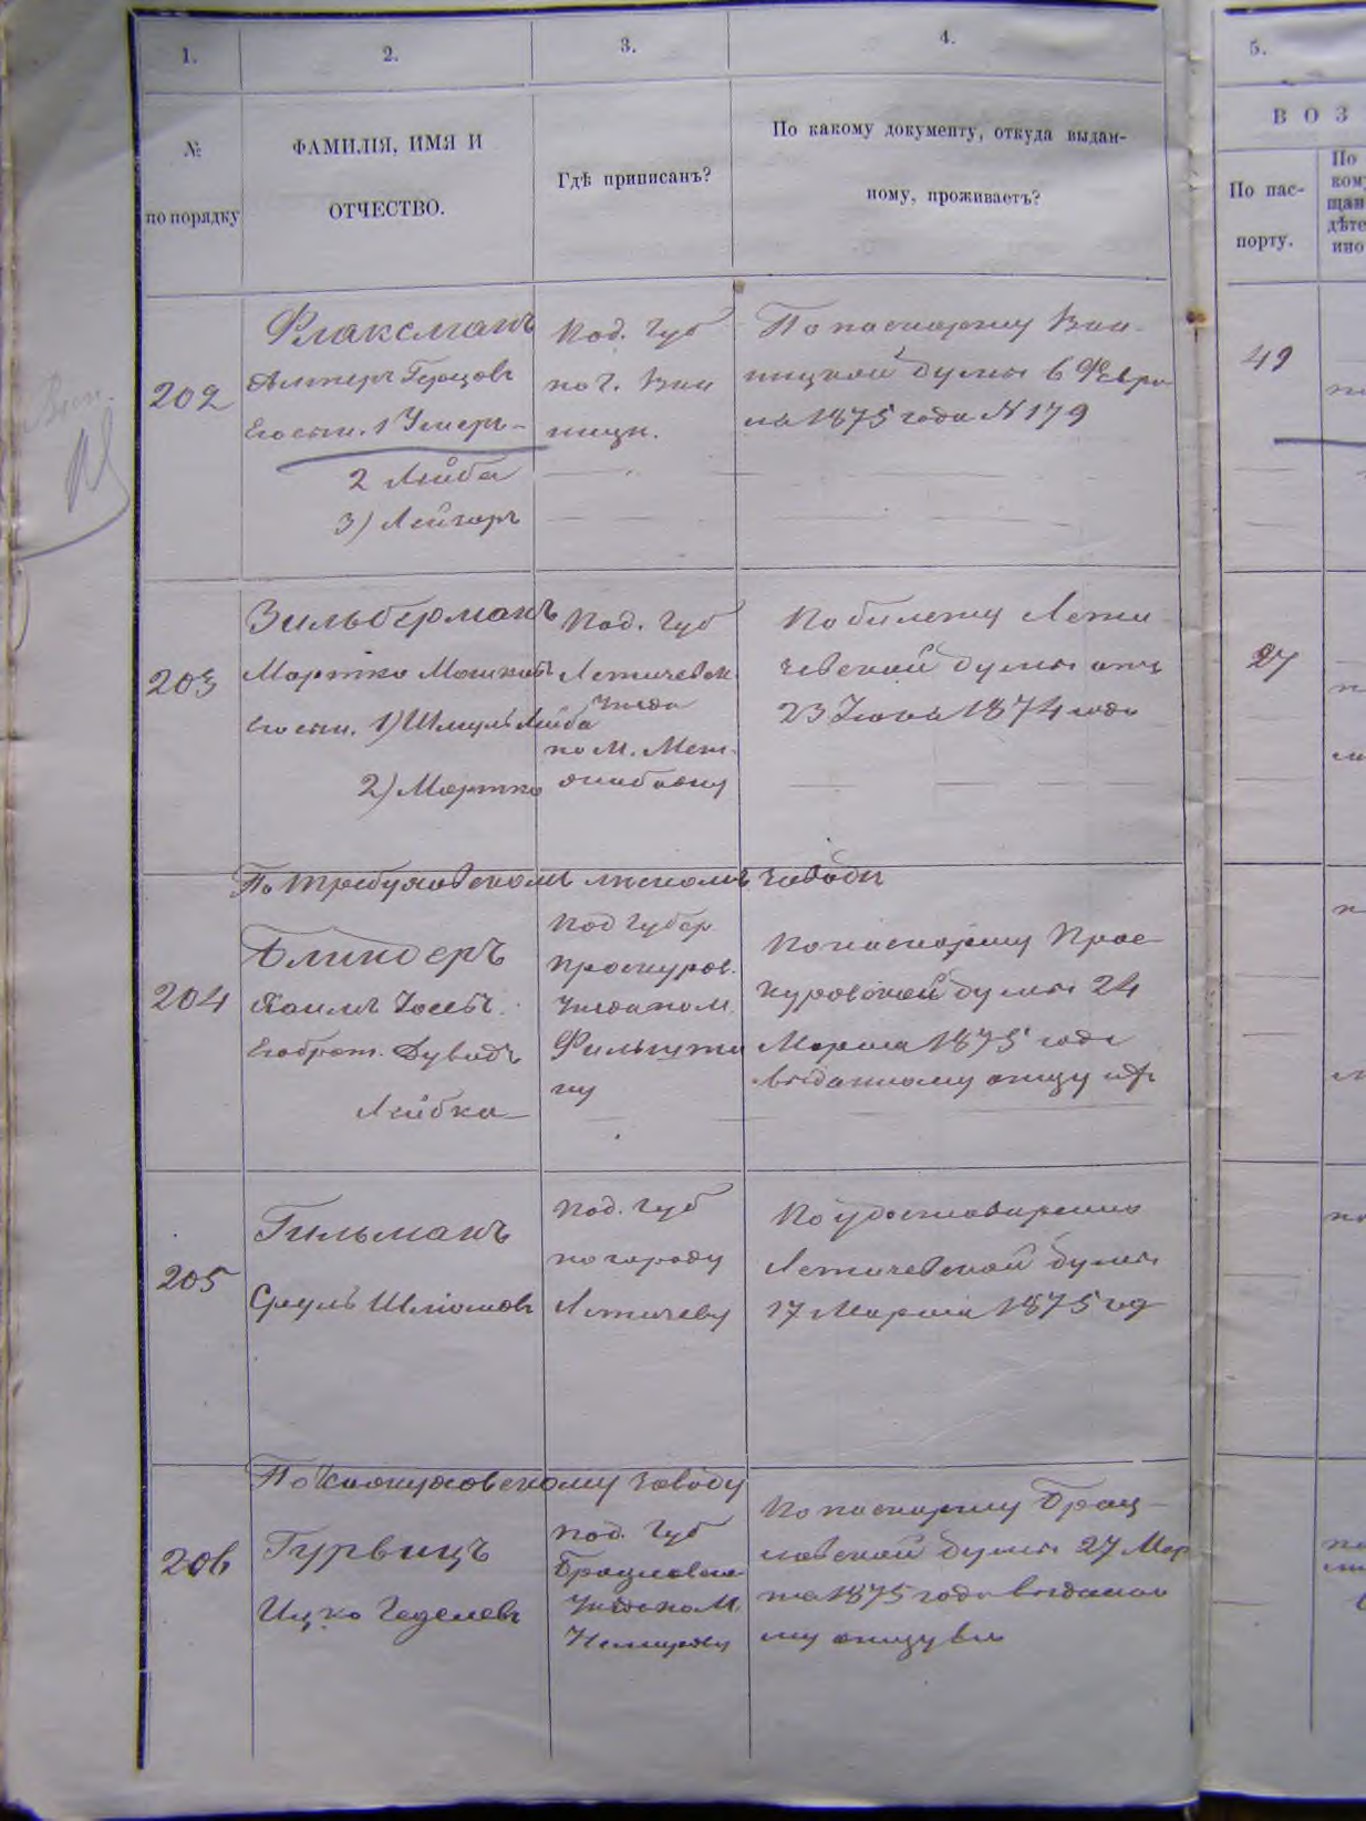 1.
2.
3.
4.
5.
№
по порядку
ФАМИЛІЯ, ИМЯ И
ОТЧЕСТВО.
Гдѣ приписанъ?
По какому документу, откуда выдан-
ному, проживаетъ?
В О З
По пас-
порту.
По
ком
щан
дѣте
ино
202
Флаксманъ
Алтеръ Герцовъ
Его сын. 1 Умеръ -
2 Лейба
3) Лейзоръ
Под. Губ
по г. Вин
ницы.
По паспорту Вин-
ницкой думы 6 Февра
ля 1875 года № 179
49
203
Зильберманъ
Мортко Мошковъ
Его сын. 1) Шмуль Лейба
2) Мортко
Под. Губ
Летичевск.
Уезда
по М.
По билету Лети
чевской думы отъ
23 Іюня 1874 года
27
По заводу
204
Блиндеръ
Хаимъ
Его брат. Дувидъ
Лейбка
Под Губер
Проскуров.
Уезда по М.
Фильшти
ну
По паспорту Прос-
куровской думы 24
Марта 1875 года
выданному отцу ихъ
205
Гильманъ
Сруль Шліомовъ
Под. Губ
по городу
Летичеву
По удостоверению
Летичевской думы
17 Марта 1875 год
По заводу
206
Гурвицъ
Ицко Геделевъ
Под. Губ
Брацлавска
Уезда по М.
Немирову
По паспорту Брац-
лавской думы 27 Мар
та 1875 года выданно
му отцу